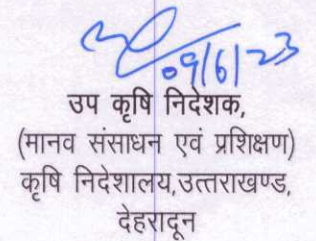 09/6/23
उप कृषि निदेशक,
(मानव संसाधन एवं प्रशिक्षण)
कृषि निदेशालय,उत्तराखण्ड,
देहरादून